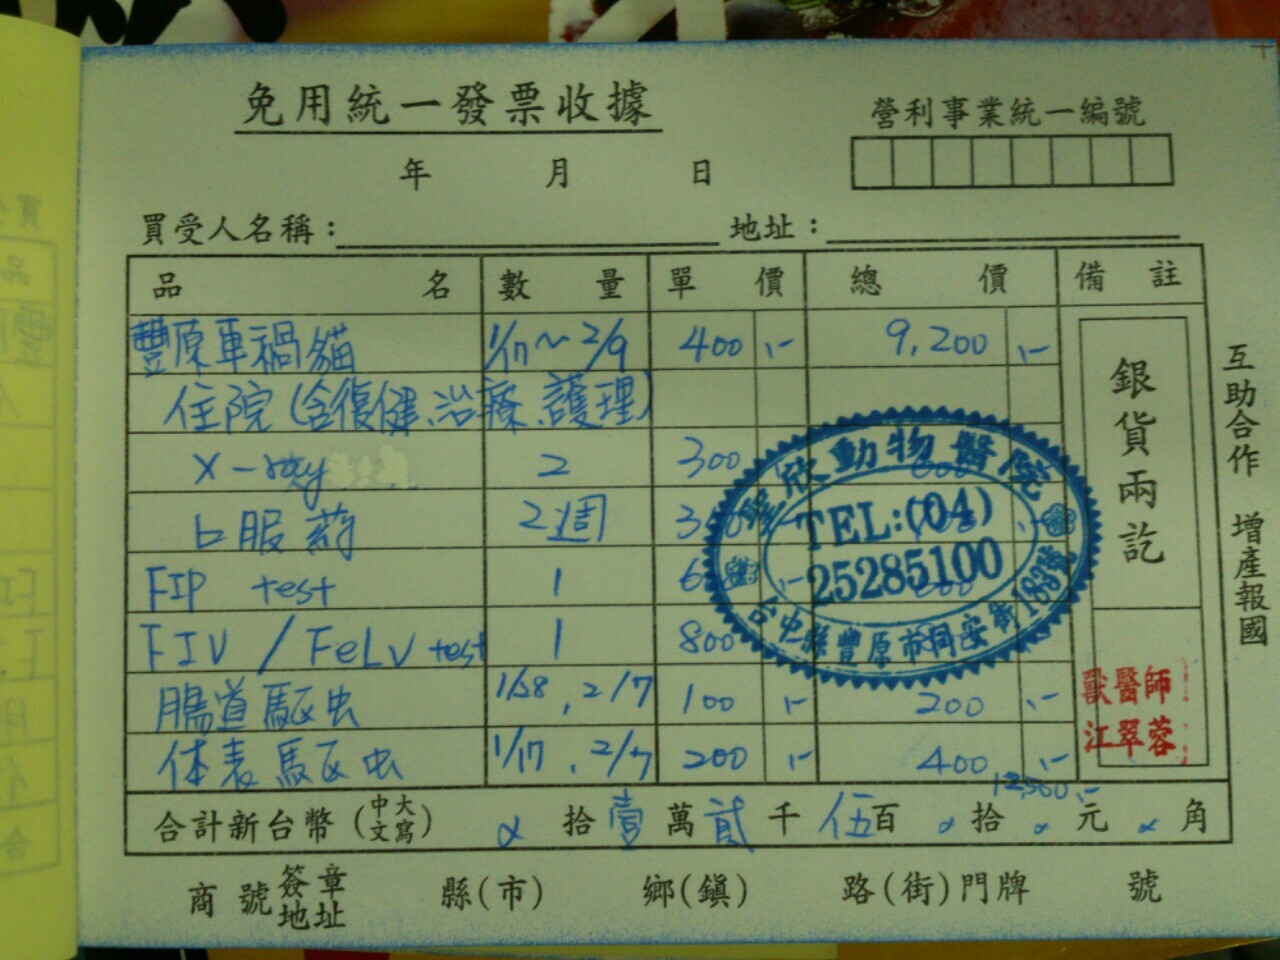 免用統一發票收據
營利事業統一編號
年 月 日
買受人名稱： 地址：
品 名 數 量 單 價 總 價 備 註
豐原車禍貓 1/17～2/9 400 ,- 9,200 ,-
住院(含復健、治療、護理)
X-ray 2 300 600
口服葯 2週
FIP test 1
FIV / FeLV test 1 800
腸道驅虫 1/28 , 2/7 100 ,- 200 ,-
体表驅虫 1/17 , 2/7 200 ,- 400 ,-
12,500 ,-
合計新台幣(中文大寫) α 拾 壹 萬 貳 千 伍 百 α 拾 α 元 α 角
商號簽章地址 縣(市) 鄉(鎮) 路(街)門牌 號
銀貨兩訖
獸醫師
江翠蓉
互助合作 增產報國
欣動物醫院
TEL:(04)
25285100
台中縣豐原市同安街183號